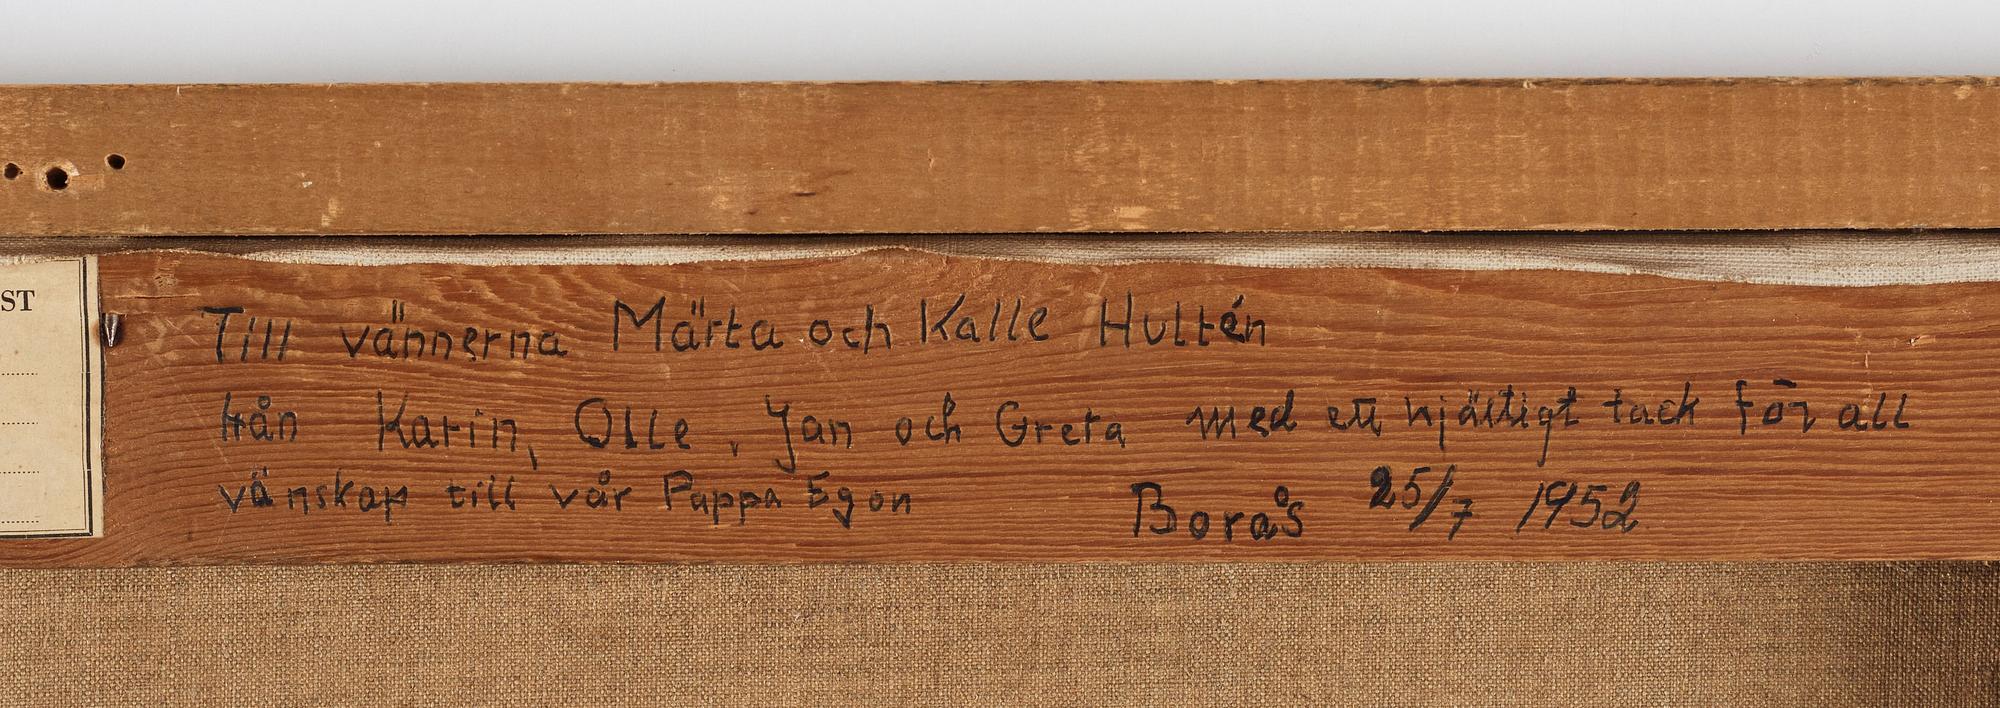 ST
Till vännerna Märta och Kalle Hultén
från Karin, Olle, Jan och Greta med ett hjärtligt tack för all
vänskap till vår Pappa Egon
Borås 25/7 1952